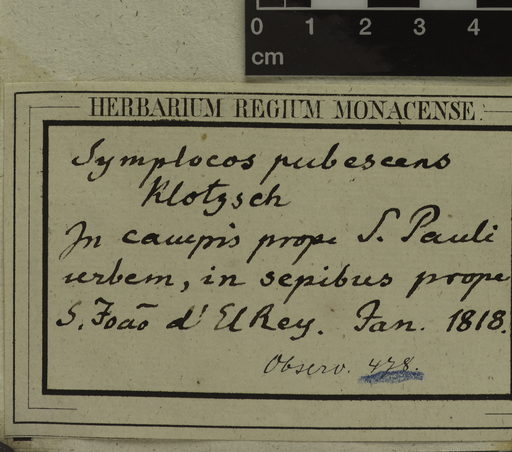 0 1 2 3 4
cm
HERBARIUM REGIUM MONACENSE.
Symplocos pubescens
Klotzsch
In campis prope S. Pauli
urbem, in sepibus prope
S. João d' El Rey. Jan. 1818.
Observ. 478.